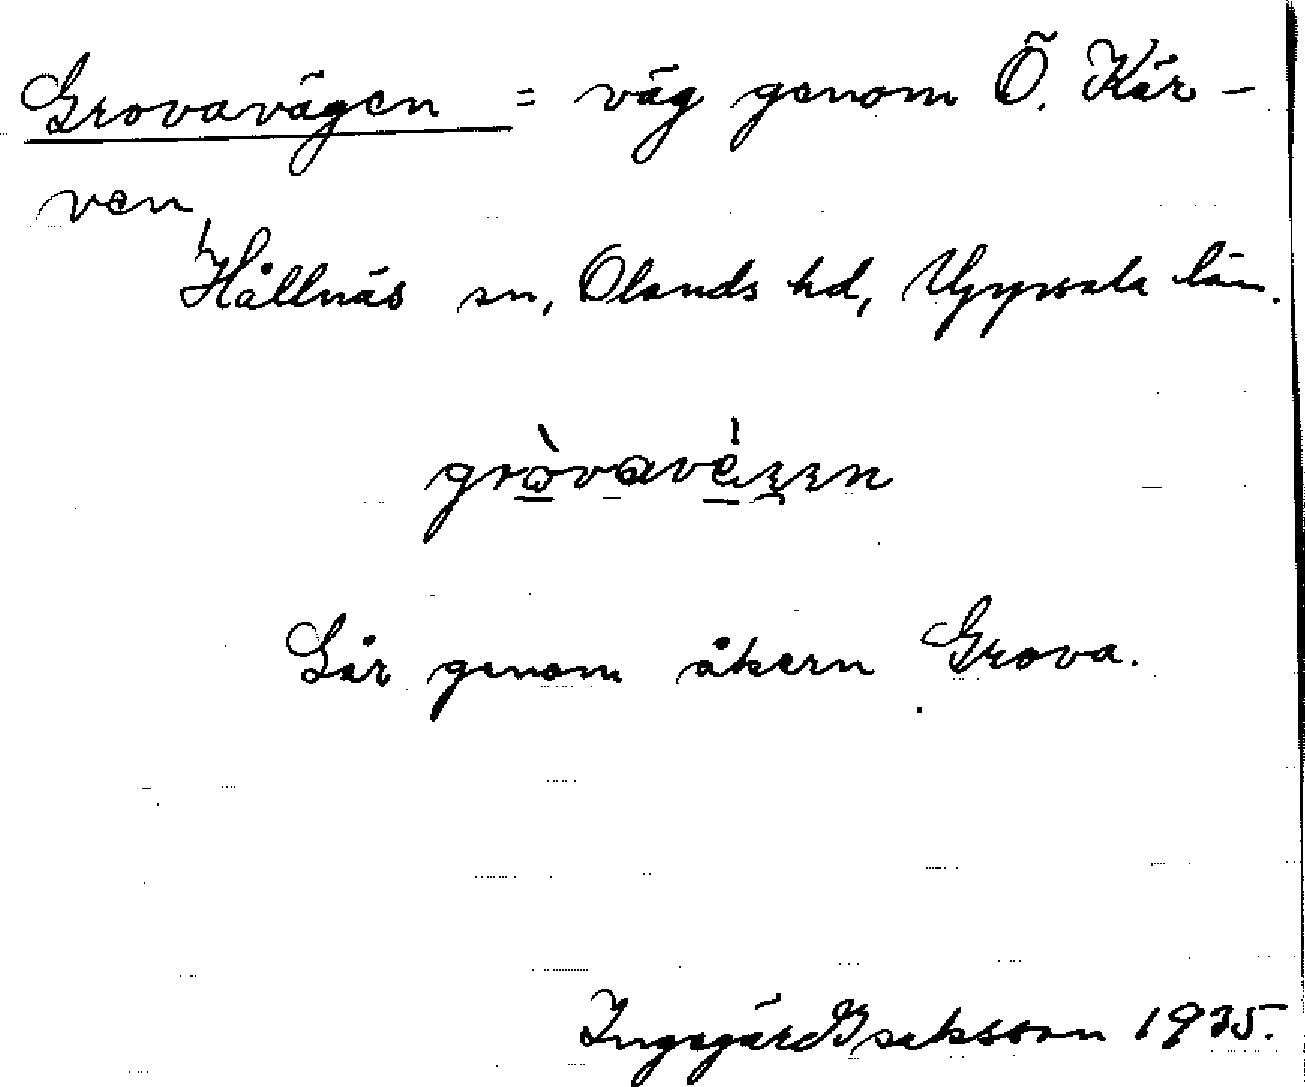 Grovavägen = väg genom Ö. Kär-
ven,
Hållnäs sn, Olands hd, Uppsala län.
Går genom åkern Grova.
Ingegärd Isaksson 1935.